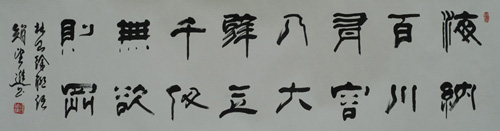 海納
百川
有容
乃大
壁立
千仞
無欲
則剛
林則徐聯語